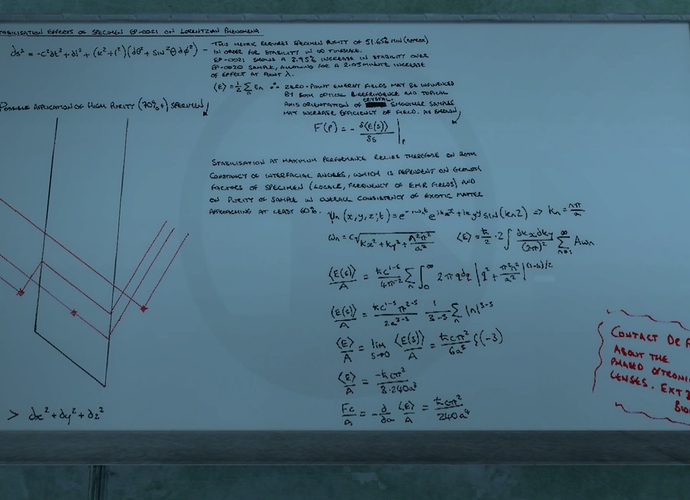 STABILISATION EFFECTS OF SPECIMEN EP-0021 ON LORENTZIAN PHENOMENA
ds² = -c²dt² + dl² + (k² + l²)(dθ² + sin²θ dφ²) -
THIS METRIC REQUIRES SPECIMEN PURITY OF 51.65%
IN ORDER FOR STABILITY IN ∞ TIMESCALE.
EP-0021 SHOWS A 2.95% INCREASE IN STABILITY OVER
EP-0020 SAMPLE, ALLOWING FOR A 2.03 MINUTE INCREASE
OF EFFECT AT POINT λ.
⟨E⟩ = ½ Σₙ Eₙ ∴ ZERO-POINT ENERGY FIELDS MAY BE INFLUENCED
BY BOTH OPTICAL BIREFRINGENCE AND TOPICAL
AXIS ORIENTATION OF CRYSTAL SMOOTHER SAMPLES
MAY INCREASE EFFICIENCY OF FIELD. AS SHOWN,
POSSIBLE APPLICATION OF HIGH PURITY (70%+) SPECIMEN
F(p) = - δ⟨E(s)⟩ / δs |p
STABILISATION AT MAXIMUM PERFORMANCE RELIES THEREFORE ON BOTH
CONSTANCY OF INTERFACIAL ANGLES, WHICH IS DEPENDENT ON GROWTH
FACTORS OF SPECIMEN (LOCALE, FREQUENCY OF EMR FIELDS) AND
ON PURITY OF SAMPLE IN OVERALL CONSISTENCY OF EXOTIC MATTER
APPROACHING AT LEAST 60%.
ψₙ(x,y,z;t) = e^(-iωₙt) e^(ikₓx + ik_y y) sin(kₙz) => kₙ = nπ/a
ωₙ = c√(kx² + ky² + n²π²/a²) ⟨E⟩ = ħ/2 · 2 ∫ dkx dky/(2π)² Σₙ₌₁^∞ Aωₙ
⟨E(s)⟩/A = ħc¹⁻ˢ/4π² Σₙ ∫₀^∞ 2πq dq |q² + π²n²/a²|^((1-s)/2)
⟨E(s)⟩/A = ħc¹⁻ˢπ²⁻ˢ/2a³⁻ˢ 1/3-s Σₙ |n|³⁻ˢ
⟨E⟩/A = lim s→0 ⟨E(s)⟩/A = ħcπ²/6a³ ζ(-3)
⟨E⟩/A = -ħcπ²/3·240a³
Fc/A = - d/da ⟨E⟩/A = ħcπ²/240a⁴
> dx² + dy² + dz²
CONTACT DR
ABOUT THE
PHASED
LENSES. EXT